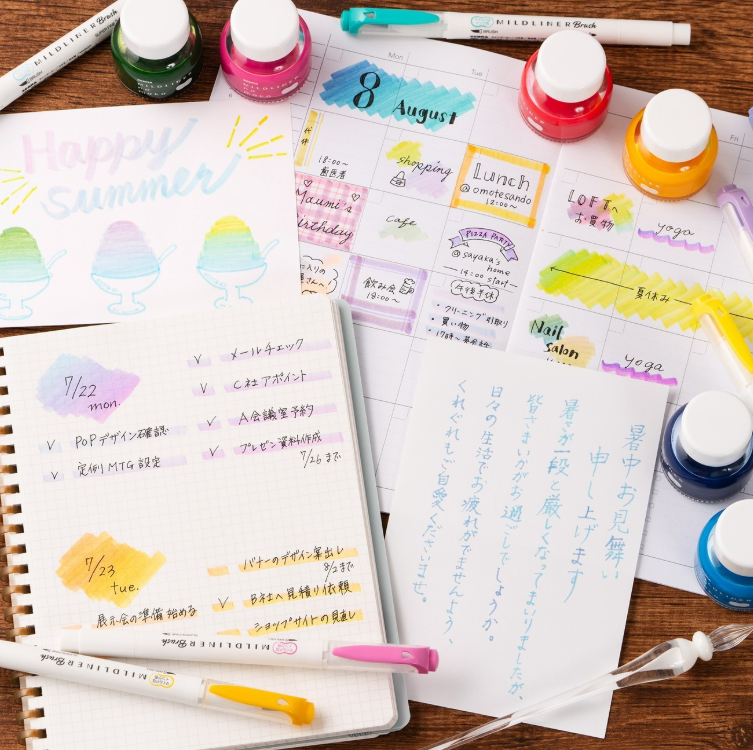 MILDLINER Brush
MILDLINER Brush
Happy
summer
Mon
Tue
Fri
8 August
18:00〜
歯医者
shopping
Lunch
@omotesando
12:00〜
Maumi's
Birthday
cafe
PIZZA PARTY
@sayaka's
home
14:00 start
午後半休
飲み会
18:00〜
・クリーニング引取り
・買い物
LOFTへ
お買物
yoga
夏休み
Nail
Salon
yoga
7/22
mon.
✓ POPデザイン確認
✓ 定例MTG設定
✓ メールチェック
✓ C社アポイント
✓ A会議室予約
✓ プレゼン資料作成
7/26まで
7/23
tue.
展示会の準備始める
バナーのデザイン案出し
8/2まで
✓ B社へ見積り依頼
ショップサイトの見直し
暑中お見舞い
申し上げます
暑さが一段と厳しくなってまいりましたが、
皆さまいかがお過ごしでしょうか。
日々の生活でお疲れがでませんよう、
くれぐれもご自愛くださいませ。
MILDLINER Brush
MILDLINER Brush